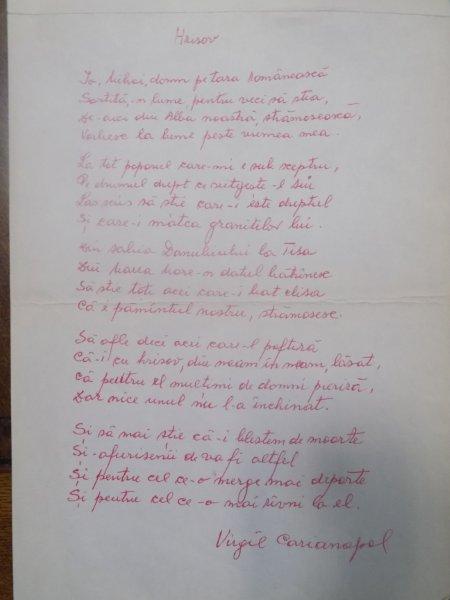 Hrisov
Io, Mihai, domn pe țara Românească
Sortită-n lume, pentru veci să stea,
De-aici din Alba noastră, strămosească,
Vorbesc la lume peste vremea mea.
La tot poporul care-mi e sub sceptru,
Pe drumul drept ce
Las scris să stie care-i este dreptul
Și care-i matca granitelor lui.
Din salba Dunăreană la Tisa
Din Marea
Să stie toti acei care-i bat
Că e pămîntul nostru, strămosesc.
Să afle deci acei care-l poftiră
Că-i cu hrisov, din neam in neam, lăsat,
Că pentru el multimi de domni pieriră,
Dar nice unul nu l-a închinat.
Și să mai stie că-i blestem de moarte
Și-afurisenii de va fi altfel
Și pentru cel ce-o merge mai departe
Și pentru cel ce-o mai rîvni la el.
Virgil Carianopol